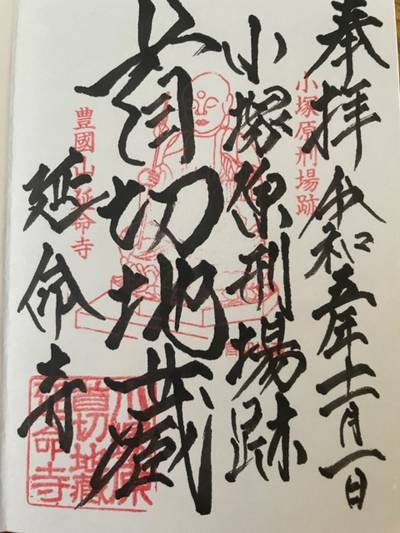 奉拝 令和五年十一月一日
小塚原刑場跡
小塚原刑場跡
首切地蔵
豊國山延命寺
延命寺
小塚原
首切地蔵
延命寺